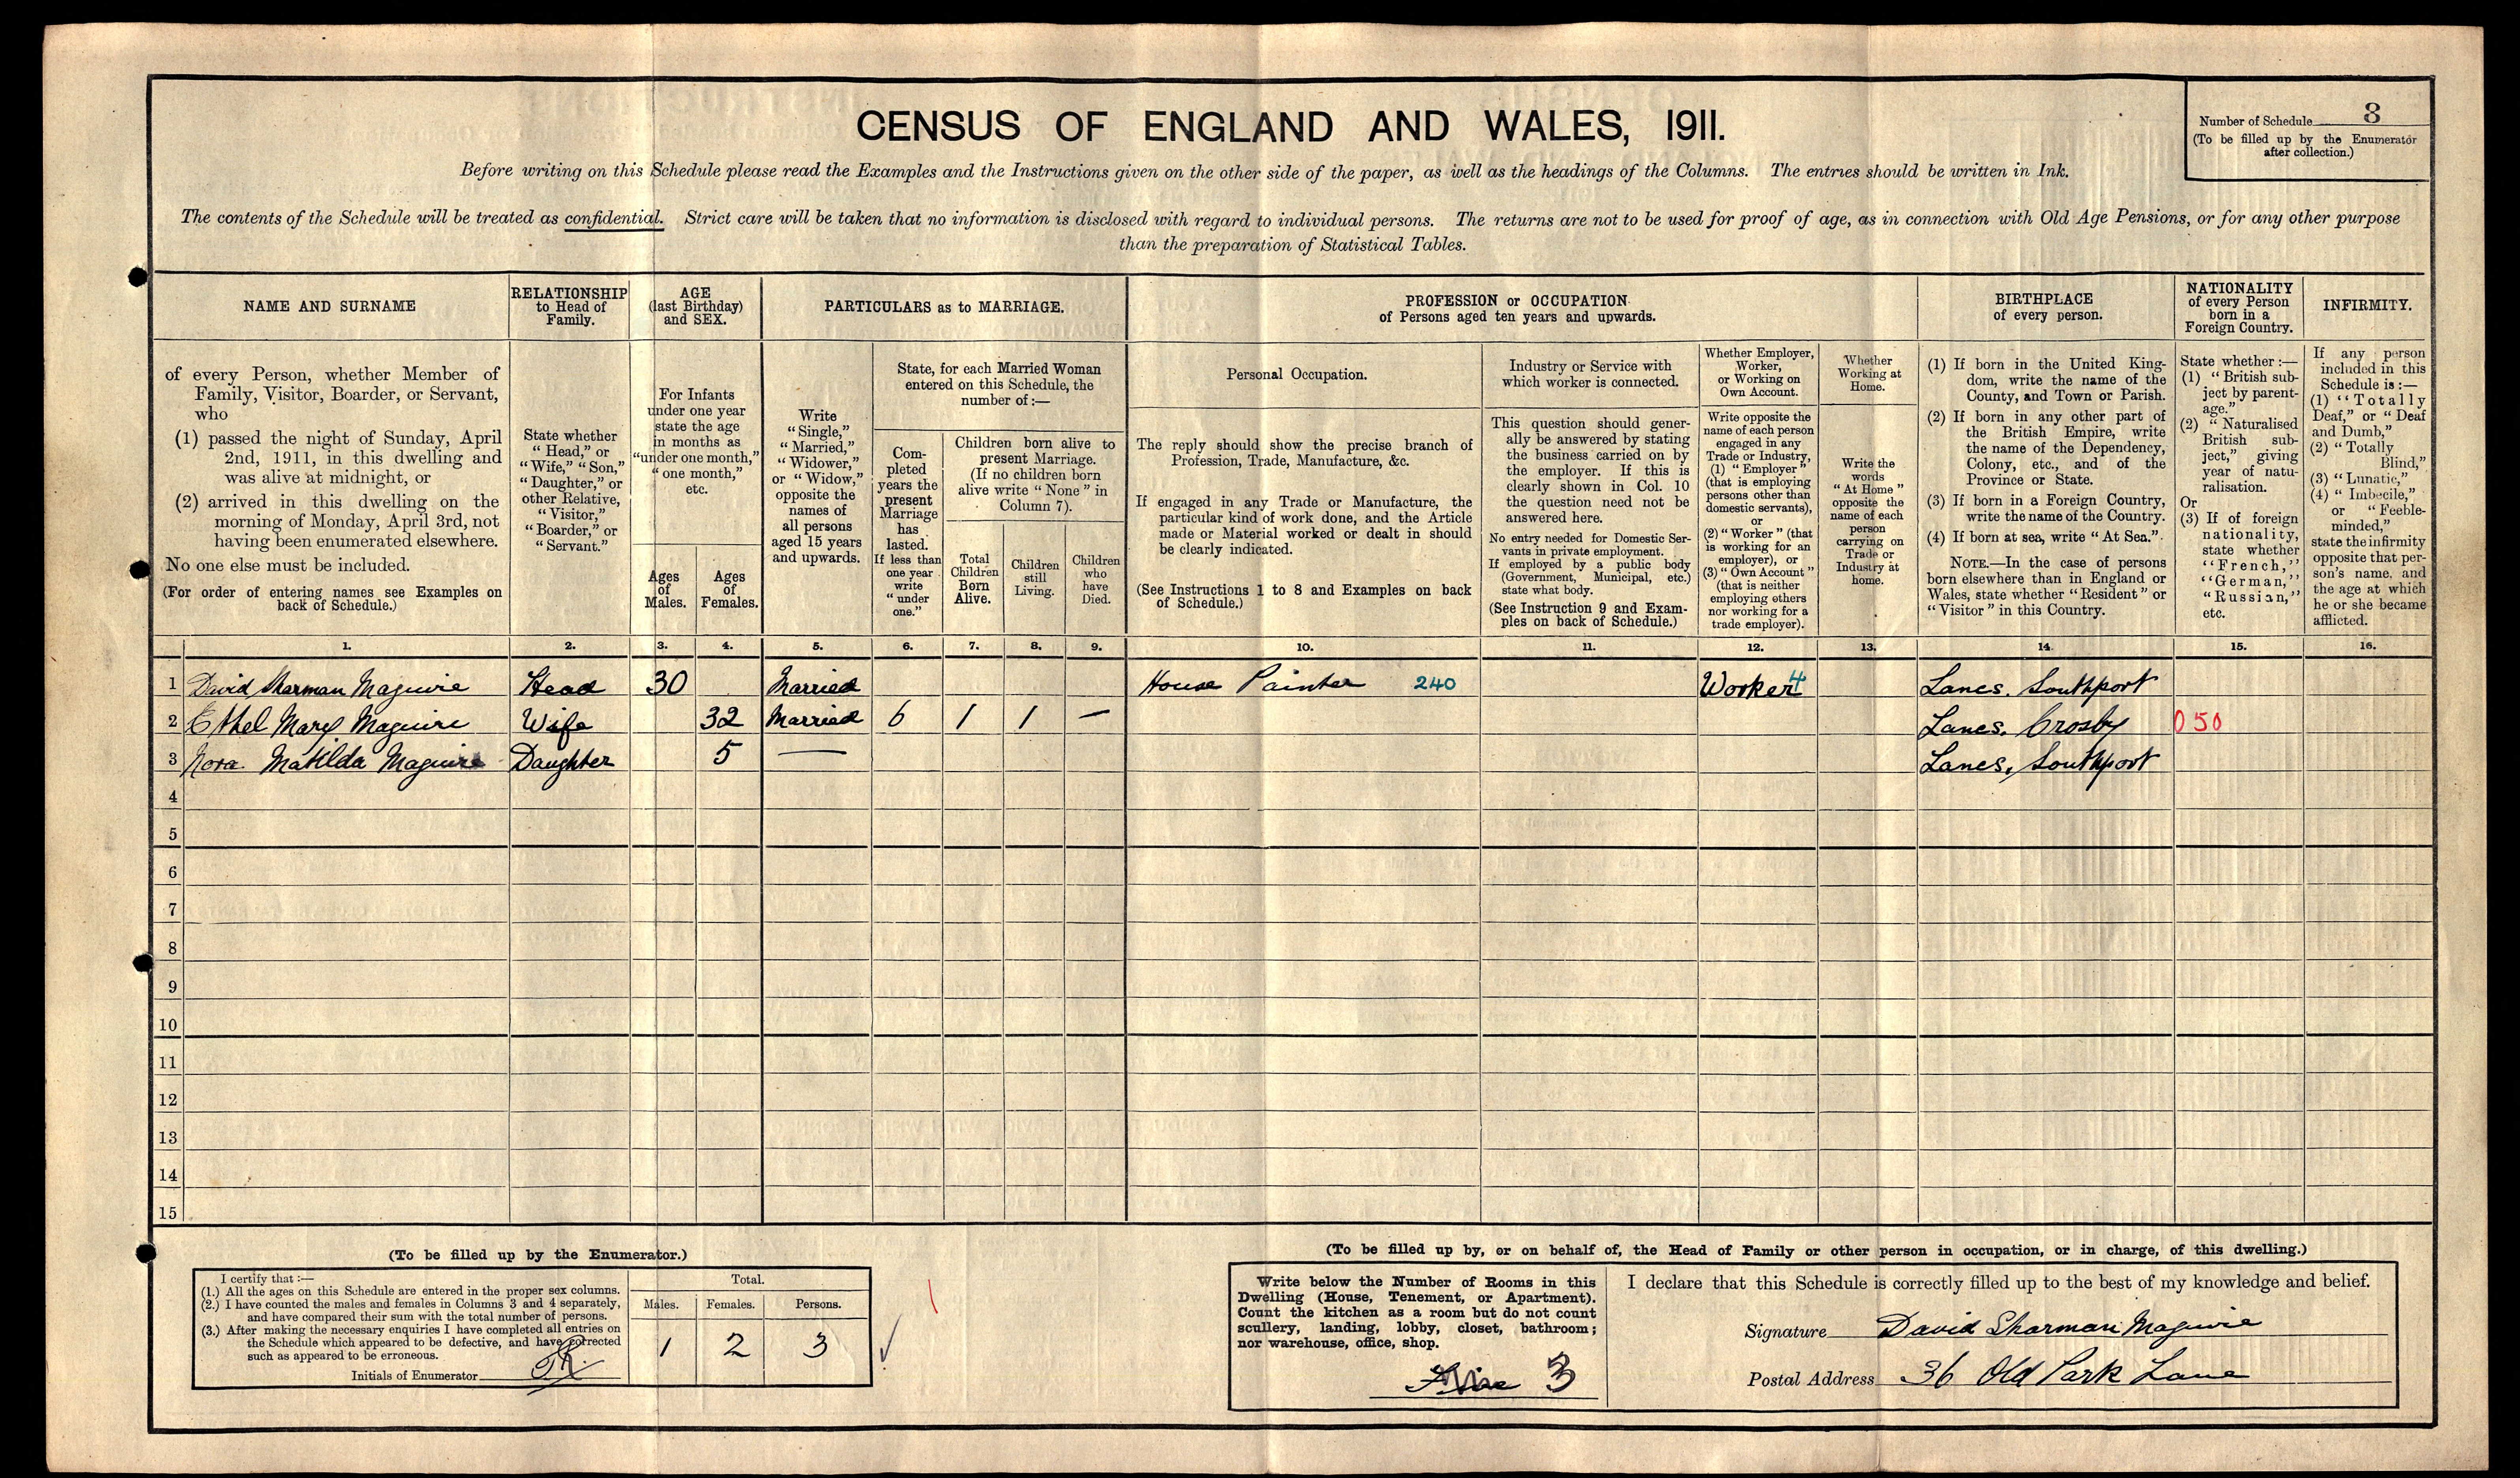 CENSUS OF ENGLAND AND WALES, 1911.
Number of Schedule 3
(To be filled up by the Enumerator
after collection.)
Before writing on this Schedule please read the Examples and the Instructions given on the other side of the paper, as well as the headings of the Columns. The entries should be written in Ink.
The contents of the Schedule will be treated as confidential. Strict care will be taken that no information is disclosed with regard to individual persons. The returns are not to be used for proof of age, as in connection with Old Age Pensions, or for any other purpose
than the preparation of Statistical Tables.
NAME AND SURNAME
of every Person, whether Member of
Family, Visitor, Boarder, or Servant,
who
(1) passed the night of Sunday, April
2nd, 1911, in this dwelling and
was alive at midnight, or
(2) arrived in this dwelling on the
morning of Monday, April 3rd, not
having been enumerated elsewhere.
No one else must be included.
(For order of entering names see Examples on
back of Schedule.)
RELATIONSHIP
to Head of
Family.
State whether
"Head," or
"Wife," "Son,"
"Daughter," or
other Relative,
"Visitor,"
"Boarder," or
"Servant."
AGE
(last Birthday)
and SEX.
For Infants
under one year
state the age
in months as
"under one month,"
"one month,"
etc.
Ages
of
Males.
Ages
of
Females.
PARTICULARS as to MARRIAGE.
Write
"Single,"
"Married,"
"Widower,"
or "Widow,"
opposite the
names of
all persons
aged 15 years
and upwards.
State, for each Married Woman
entered on this Schedule, the
number of:—
Com-
pleted
years the
present
Marriage
has
lasted.
If less than
one year
write
"under
one."
Children born alive to
present Marriage.
(If no children born
alive write "None" in
Column 7).
Total
Children
Born
Alive.
Children
still
Living.
Children
who
have
Died.
PROFESSION or OCCUPATION
of Persons aged ten years and upwards.
Personal Occupation.
The reply should show the precise branch of
Profession, Trade, Manufacture, &c.
If engaged in any Trade or Manufacture, the
particular kind of work done, and the Article
made or Material worked or dealt in should
be clearly indicated.
(See Instructions 1 to 8 and Examples on back
of Schedule.)
Industry or Service with
which worker is connected.
This question should gener-
ally be answered by stating
the business carried on by
the employer. If this is
clearly shown in Col. 10
the question need not be
answered here.
No entry needed for Domestic Ser-
vants in private employment.
If employed by a public body
(Government, Municipal, etc.)
state what body.
(See Instruction 9 and Exam-
ples on back of Schedule.)
Whether Employer,
Worker,
or Working on
Own Account.
Write opposite the
name of each person
engaged in any
Trade or Industry,
(1) "Employer"
(that is employing
persons other than
domestic servants),
or
(2) "Worker" (that
is working for an
employer), or
(3) "Own Account"
(that is neither
employing others
nor working for a
trade employer).
Whether
Working at
Home.
Write the
words
"At Home"
opposite the
name of each
person
carrying on
Trade or
Industry at
home.
BIRTHPLACE
of every person.
(1) If born in the United King-
dom, write the name of the
County, and Town or Parish.
(2) If born in any other part of
the British Empire, write
the name of the Dependency,
Colony, etc., and of the
Province or State.
(3) If born in a Foreign Country,
write the name of the Country.
(4) If born at sea, write "At Sea."
NOTE.—In the case of persons
born elsewhere than in England or
Wales, state whether "Resident" or
"Visitor" in this Country.
NATIONALITY
of every Person
born in a
Foreign Country.
State whether :—
(1) "British sub-
ject by parent-
age."
(2) "Naturalised
British sub-
ject," giving
year of natu-
ralisation.
Or
(3) If of foreign
nationality,
state whether
"French,"
"German,"
"Russian,"
etc.
INFIRMITY.
If any person
included in this
Schedule is :—
(1) "Totally
Deaf," or "Deaf
and Dumb,"
(2) "Totally
Blind,"
(3) "Lunatic,"
(4) "Imbecile,"
or "Feeble-
minded,"
state the infirmity
opposite that per-
son's name, and
the age at which
he or she became
afflicted.
1. 2. 3. 4. 5. 6. 7. 8. 9. 10. 11. 12. 13. 14. 15. 16.
1 David Sharman Maguire Head 30 Married House Painter 240 Worker 4 Lancs. Southport
2 Ethel Mary Maguire Wife 32 Married 6 1 1 — Lancs. Crosby 050
3 Nora Matilda Maguire Daughter 5 — Lancs, Southport
4
5
6
7
8
9
10
11
12
13
14
15
(To be filled up by the Enumerator.)
I certify that :—
(1.) All the ages on this Schedule are entered in the proper sex columns.
(2.) I have counted the males and females in Columns 3 and 4 separately,
and have compared their sum with the total number of persons.
(3.) After making the necessary enquiries I have completed all entries on
the Schedule which appeared to be defective, and have corrected
such as appeared to be erroneous.
Initials of Enumerator
Total.
Males. Females. Persons.
1 2 3
(To be filled up by, or on behalf of, the Head of Family or other person in occupation, or in charge, of this dwelling.)
Write below the Number of Rooms in this
Dwelling (House, Tenement, or Apartment).
Count the kitchen as a room but do not count
scullery, landing, lobby, closet, bathroom;
nor warehouse, office, shop.
3
I declare that this Schedule is correctly filled up to the best of my knowledge and belief.
Signature David Sharman Maguire
Postal Address 36 Old Park Lane